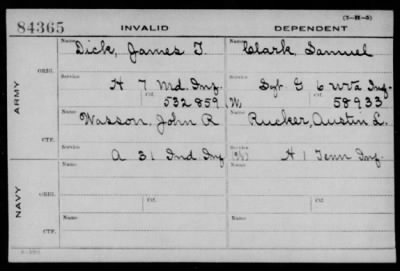 (3-H-5)
84365 INVALID DEPENDENT
Name Dick, James T. Name Clark, Samuel
ORIG.
Service H 7 Md. Inf. Service Sgt G 6 W Va Inf.
Ctf. 532859 (W) Ctf. 58933
ARMY
Name Wasson, John R Name Rucker, Austin L.
CTF.
Service A 31 Ind Inf Service H 1 Tenn Inf.
Name Name
ORIG.
Service Ctf. Service Ctf.
NAVY
Name Name
CTF.
Service Service